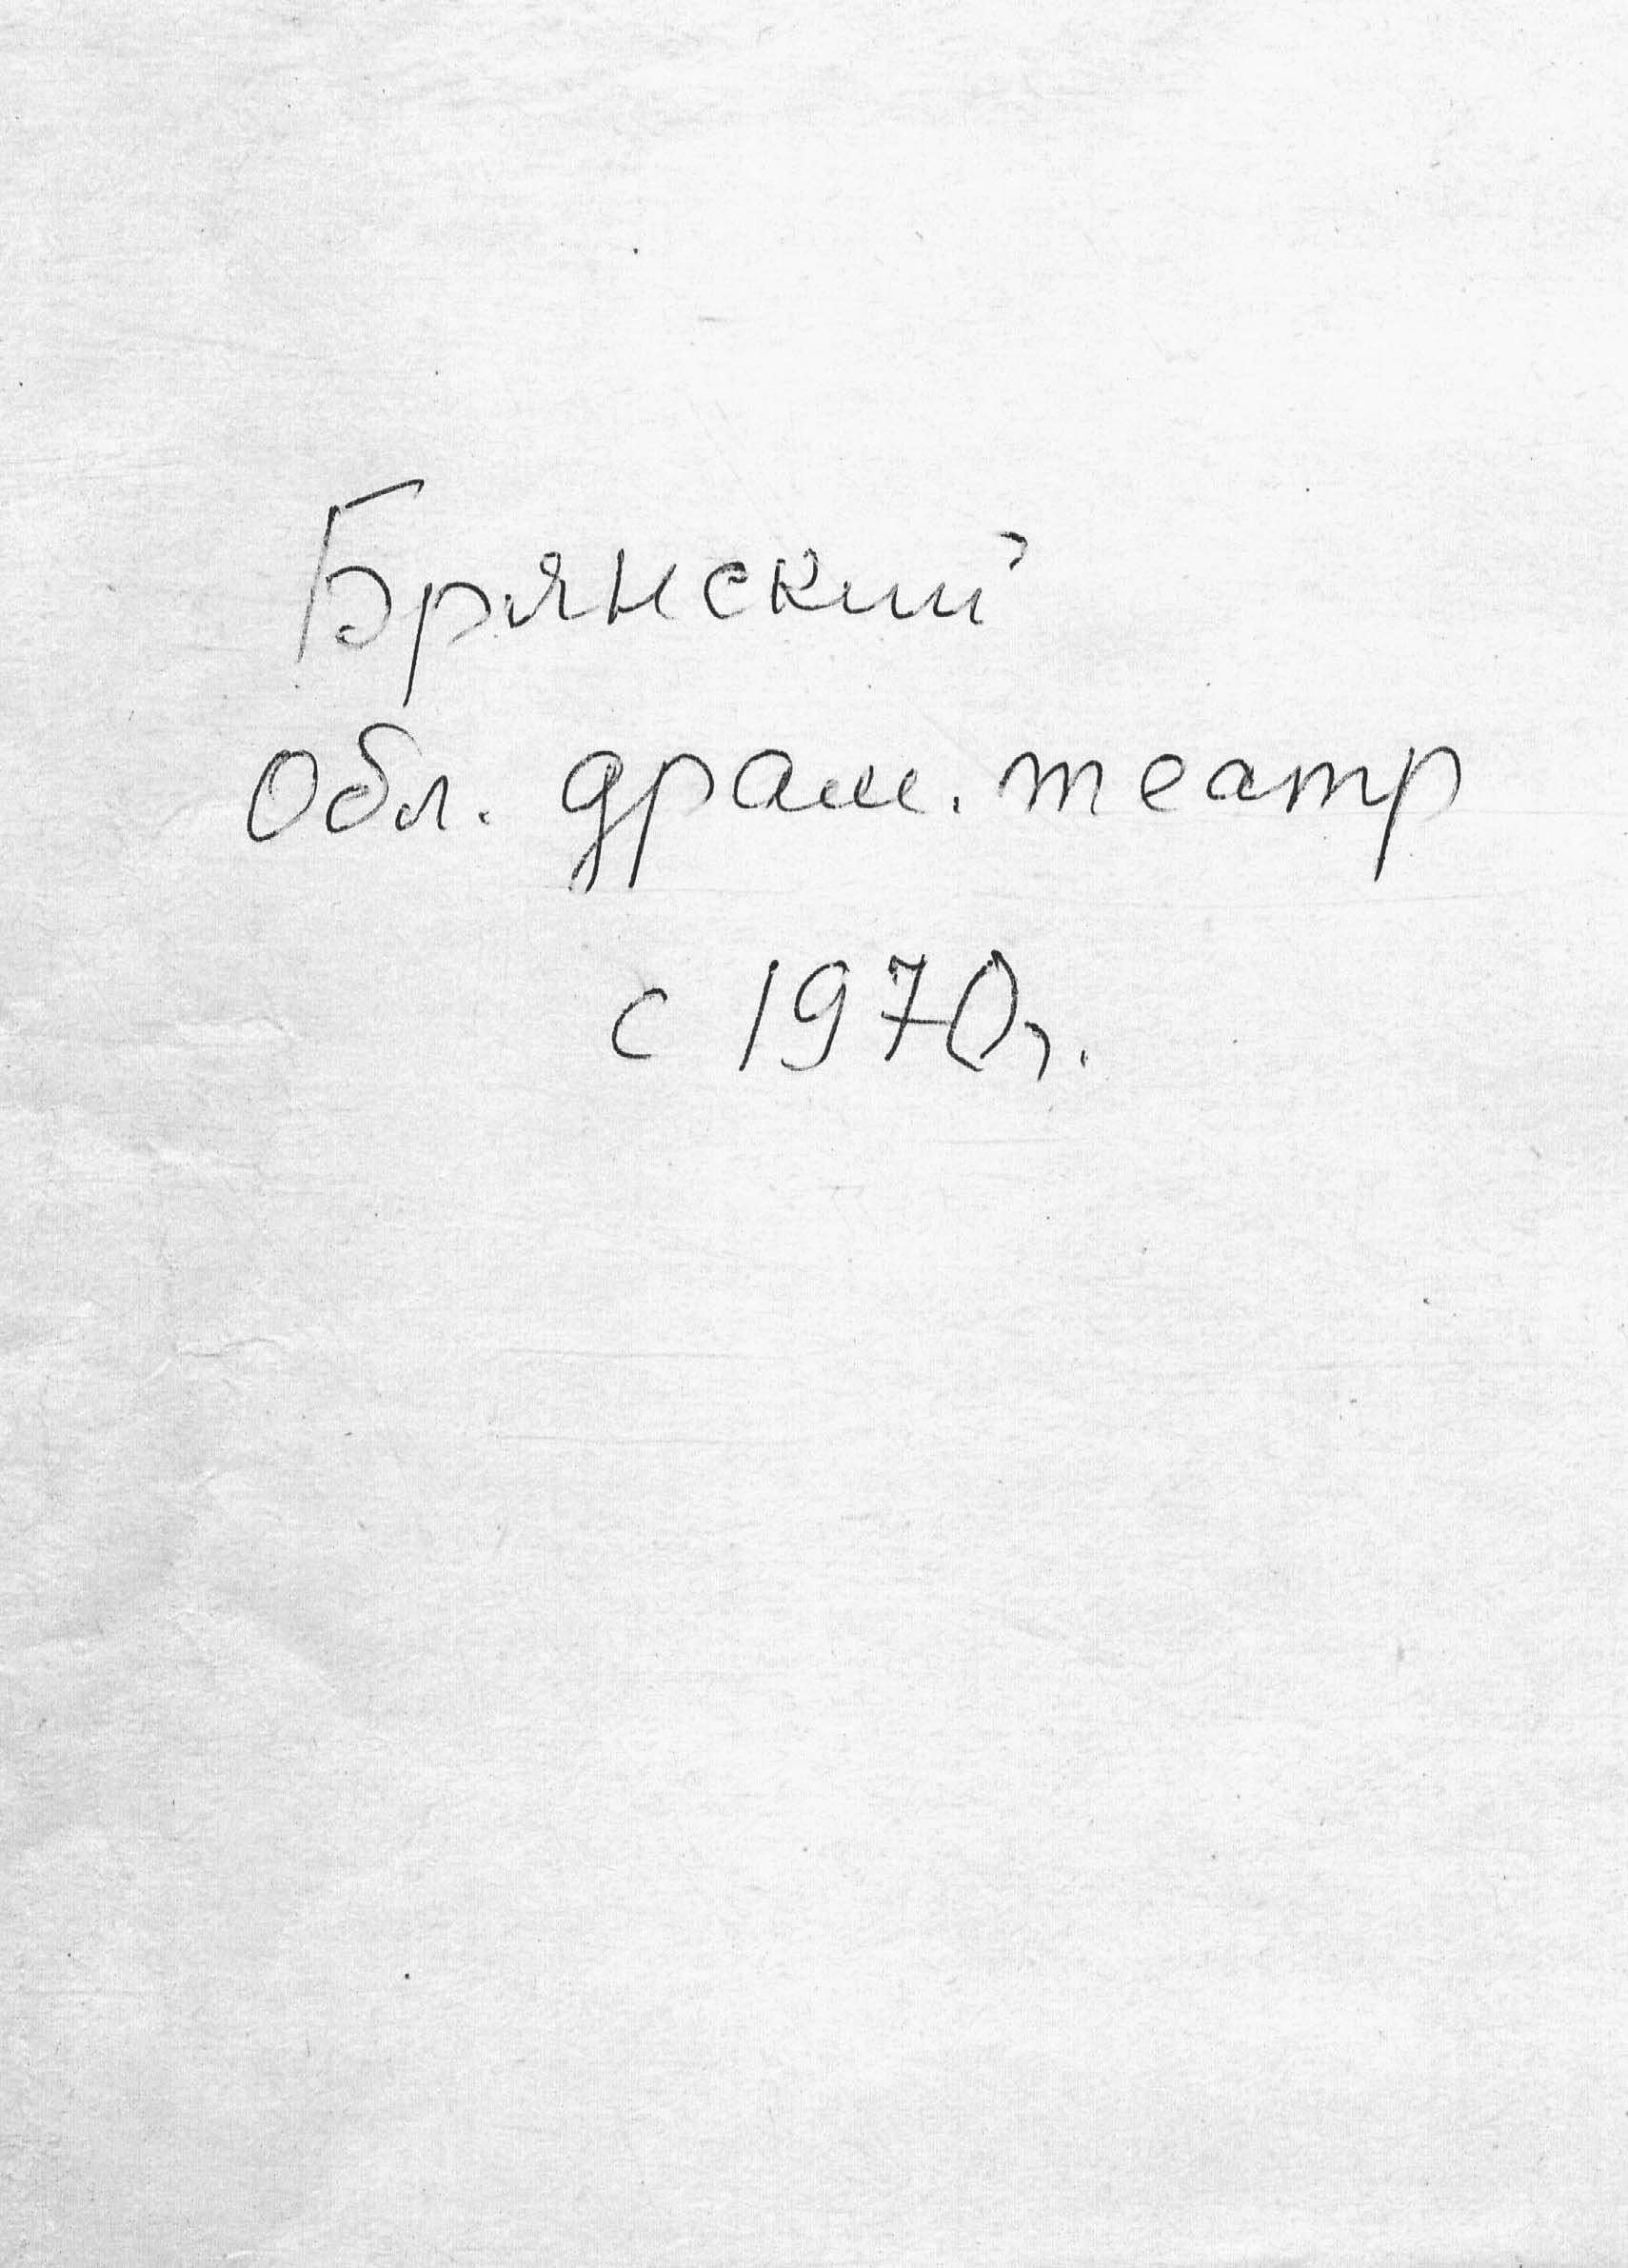 Брянский
Обл. драм. театр
с 1970г.